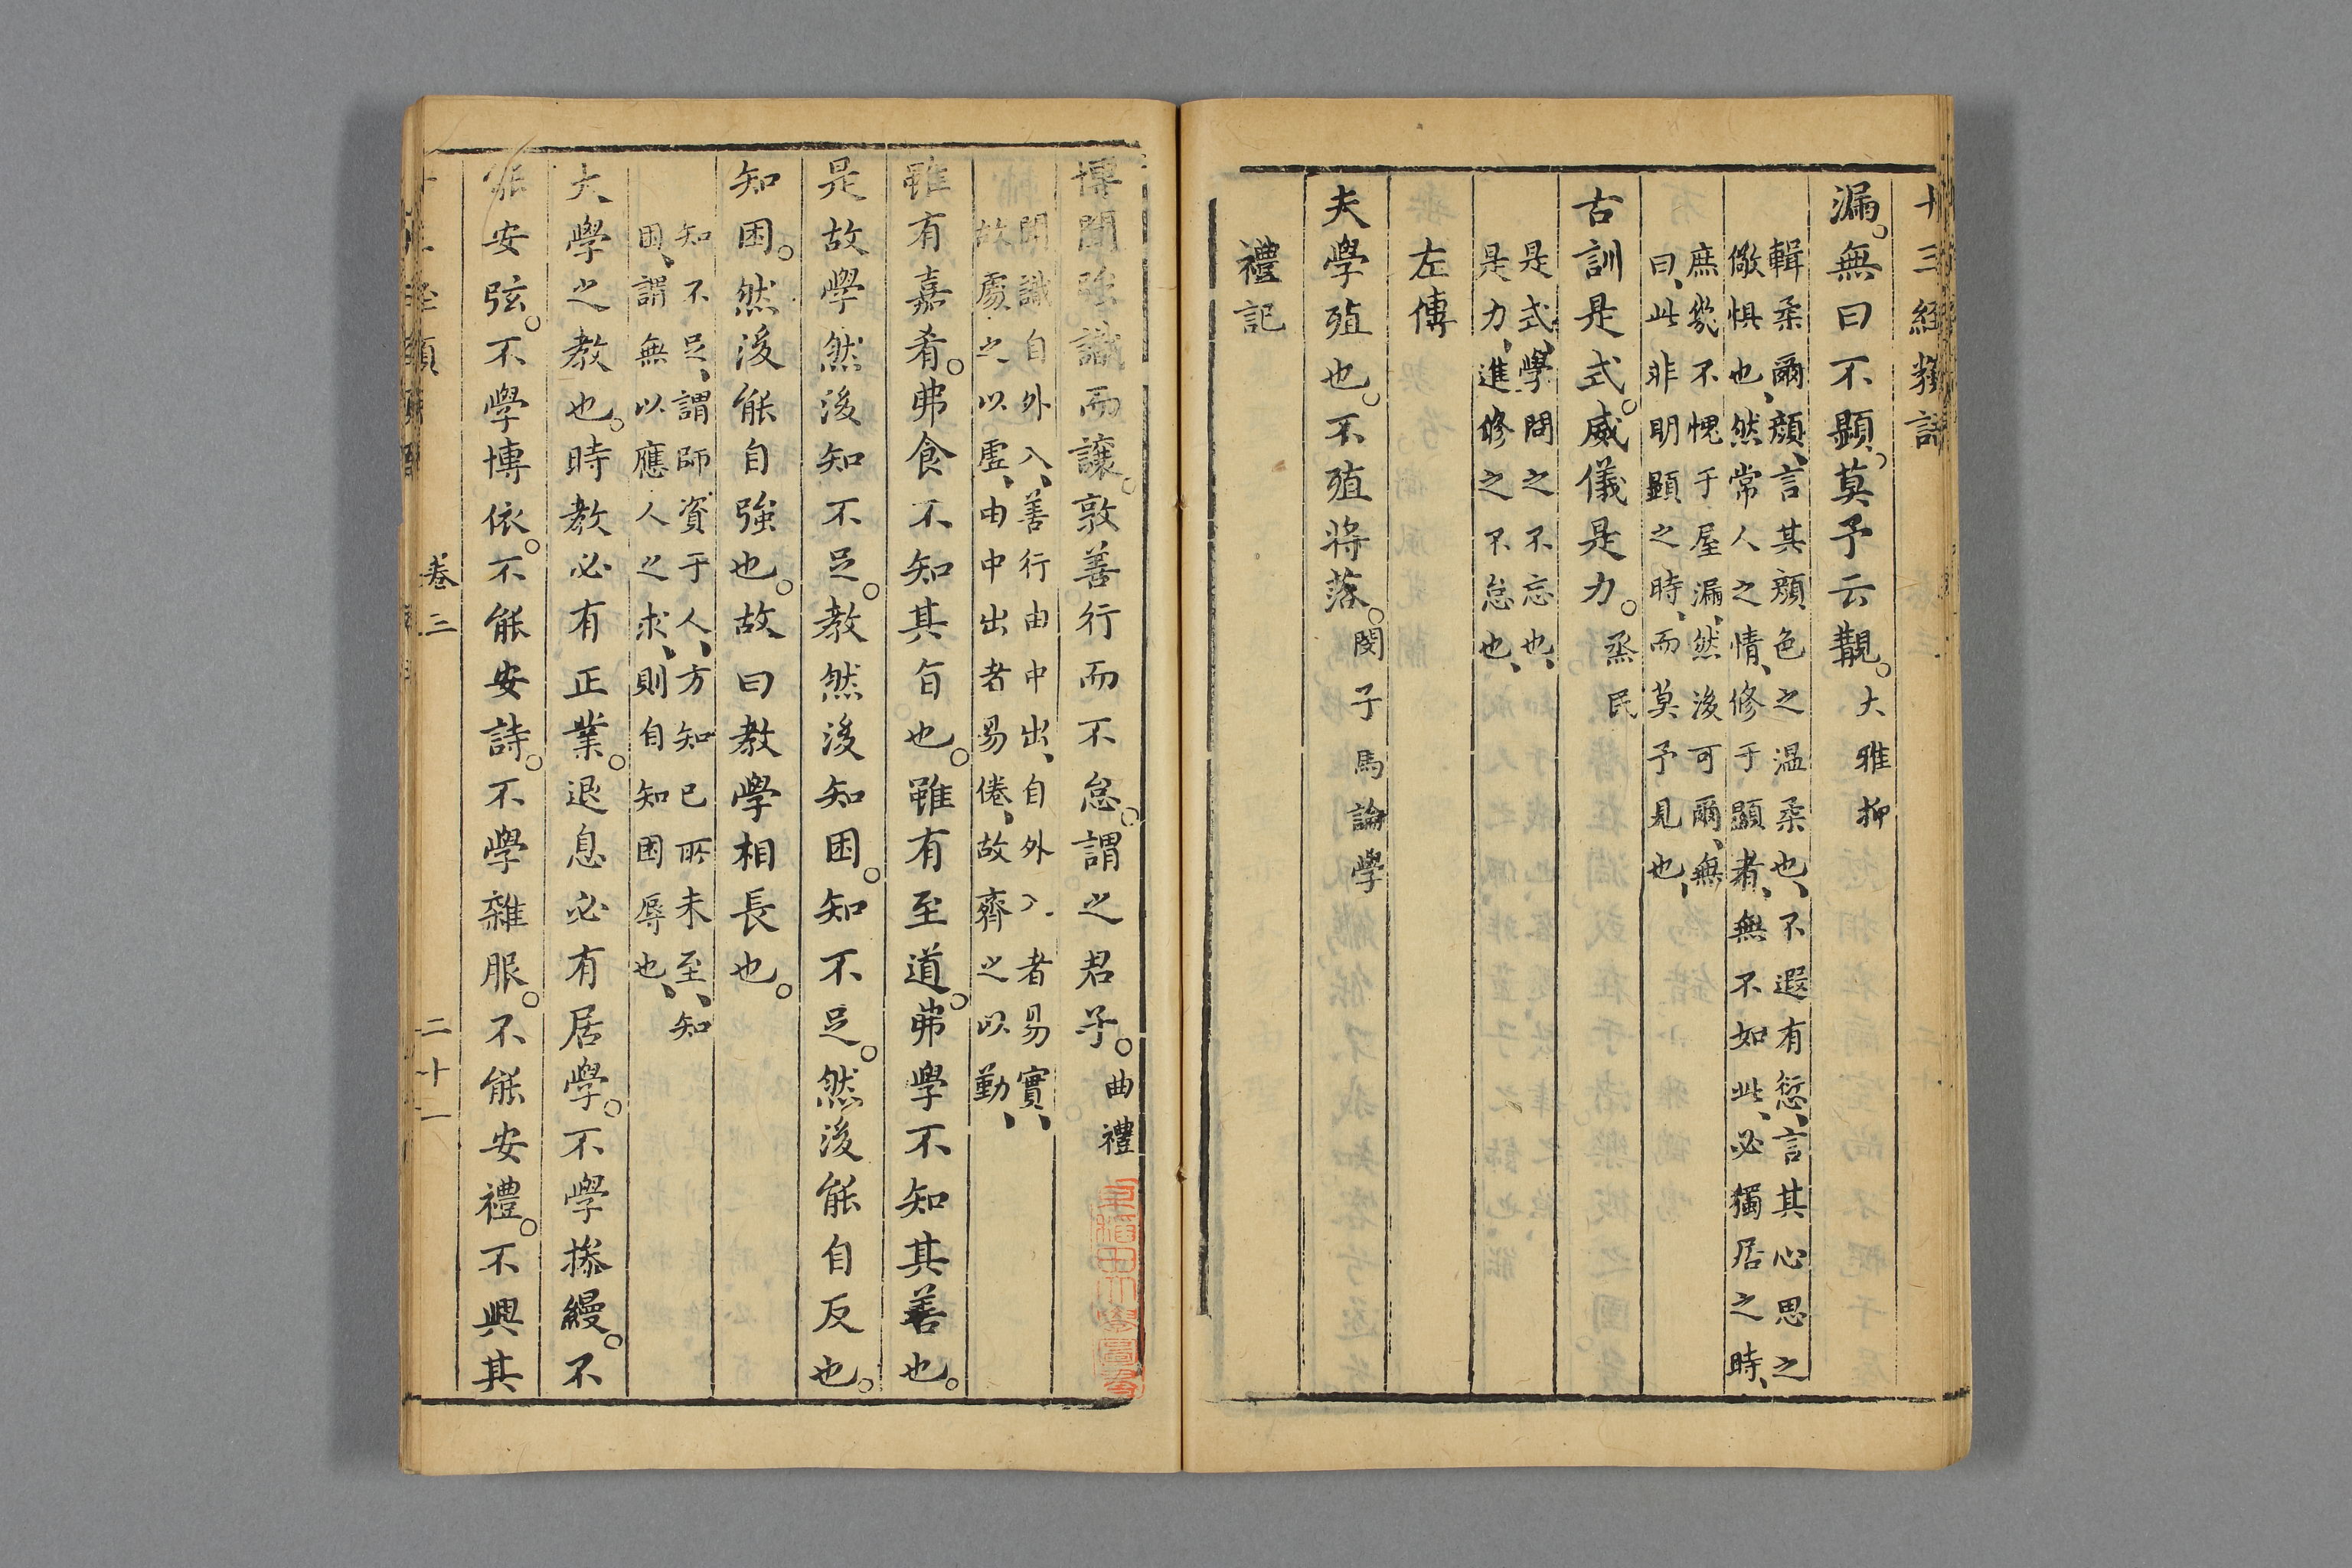 十三經類語
漏。無曰不顯。莫予云覯。大雅抑
輯柔爾顏、言其顏色之温柔也、不遐有愆、言其心思之
儆惧也、然常人之情、修于顯者、無不如此、必獨居之時、
庶幾不愧于屋漏、然後可爾、無
曰、此非明顯之時、而莫予見也、
古訓是式。威儀是力。烝民
是式、學問之不忘也、
是力、進修之不怠也、
左傳
夫學殖也。不殖将落。閔子馬論學
禮記
博聞强識而讓。敦善行而不怠。謂之君子。曲禮
聞識自外入、善行由中出、自外入者易實、
故處之以虚、由中出者易倦、故齊之以勤、
雖有嘉肴。弗食不知其旨也。雖有至道。弗學不知其善也。
是故學然後知不足。教然後知困。知不足。然後能自反也。
知困。然後能自強也。故曰教學相長也。
知不足、謂師資于人、方知已所未至、知
困、謂無以應人之求、則自知困辱也、
大學之教也。時教必有正業。退息必有居學。不學操縵。不
能安弦。不學博依。不能安詩。不學雜服。不能安禮。不興其
卷三
二十一
早稻田大學圖書